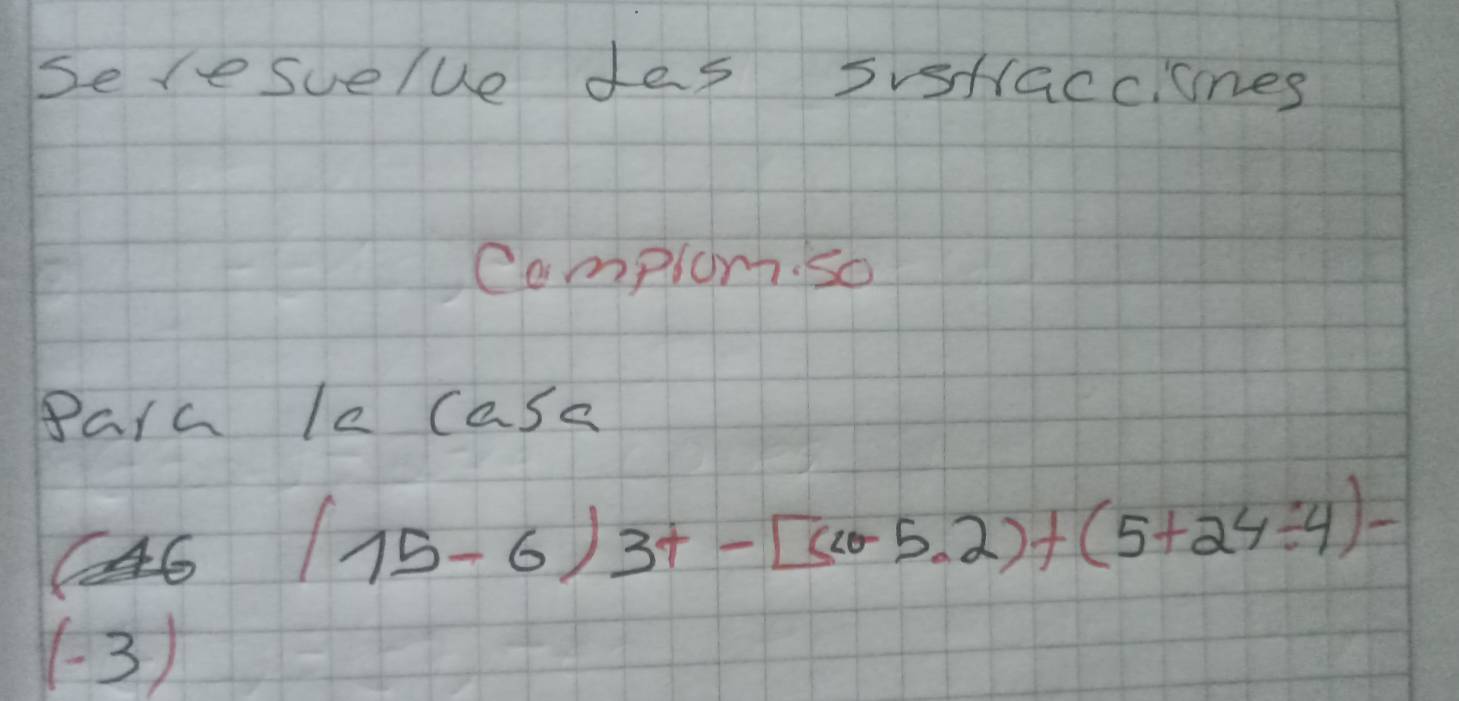 Se resuelve las sustracciones
Compromiso
Para la casa
(15-6)3+ -[(20-5.2)+(5+24÷4)-
(-3)